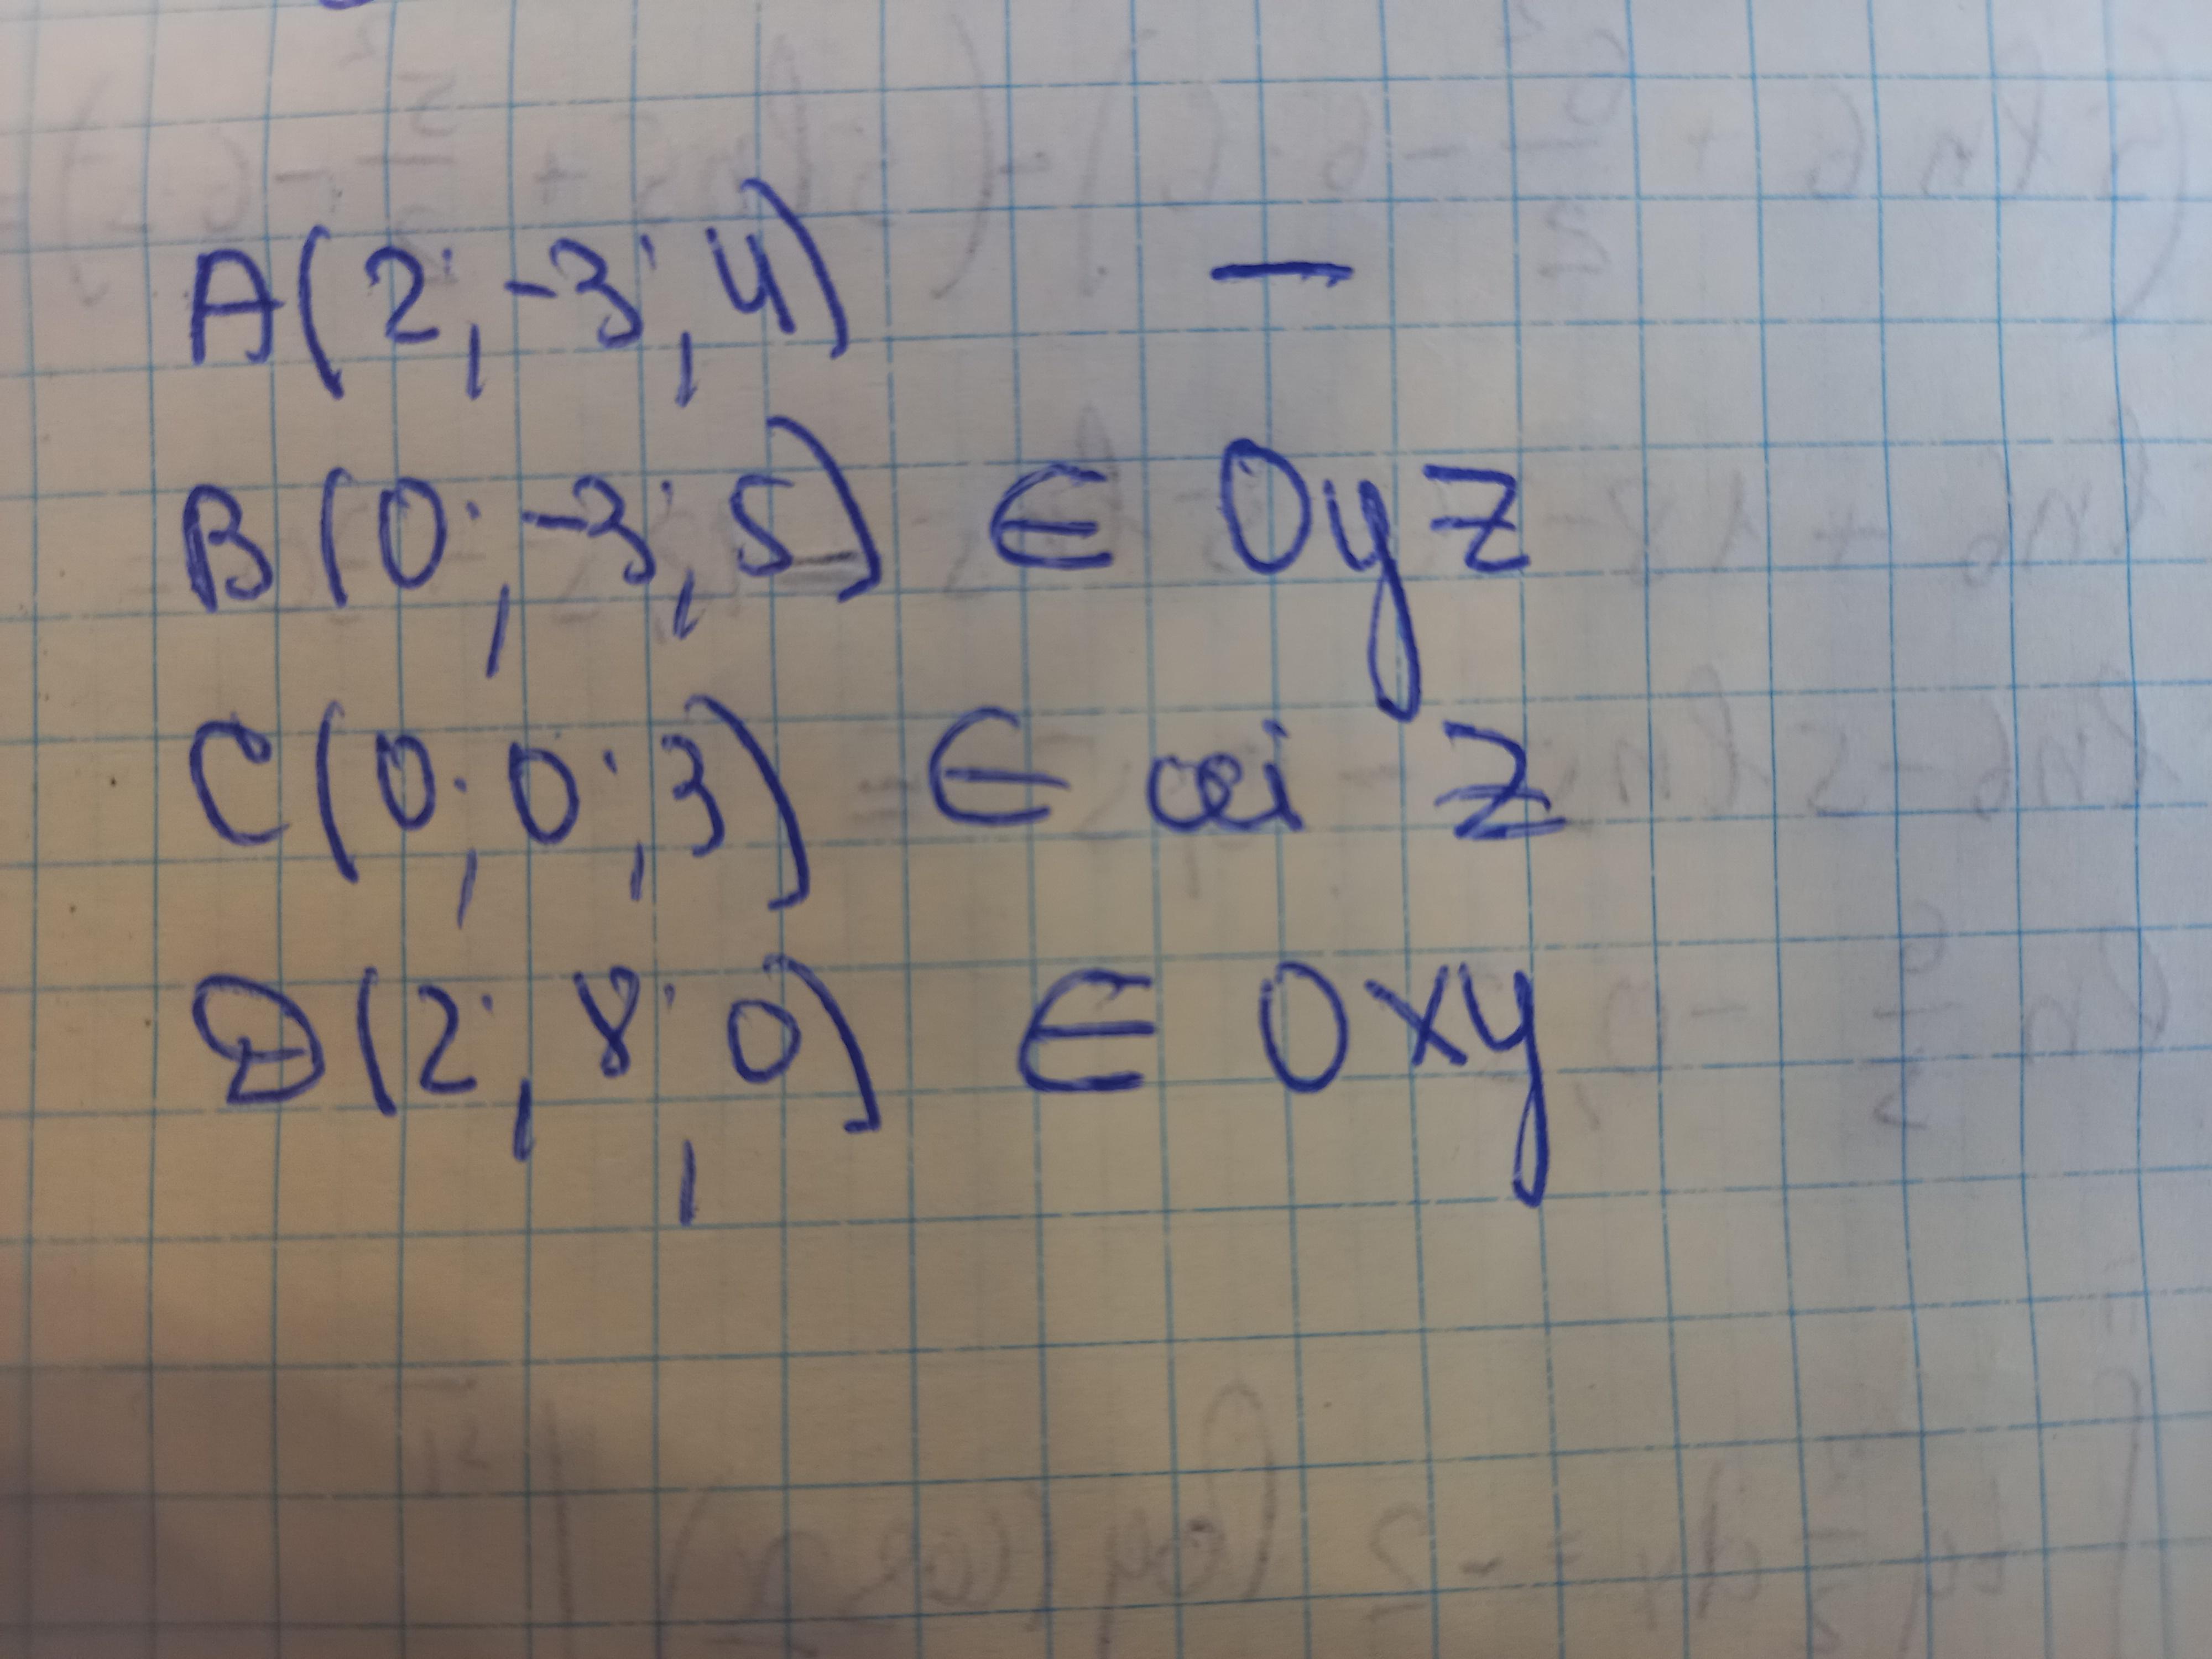 A(2; -3; 4) —
B(0; -3; 5) ∈ Oyz
C(0; 0; 3) ∈ осі Z
D(2; 8; 0) ∈ Oxy